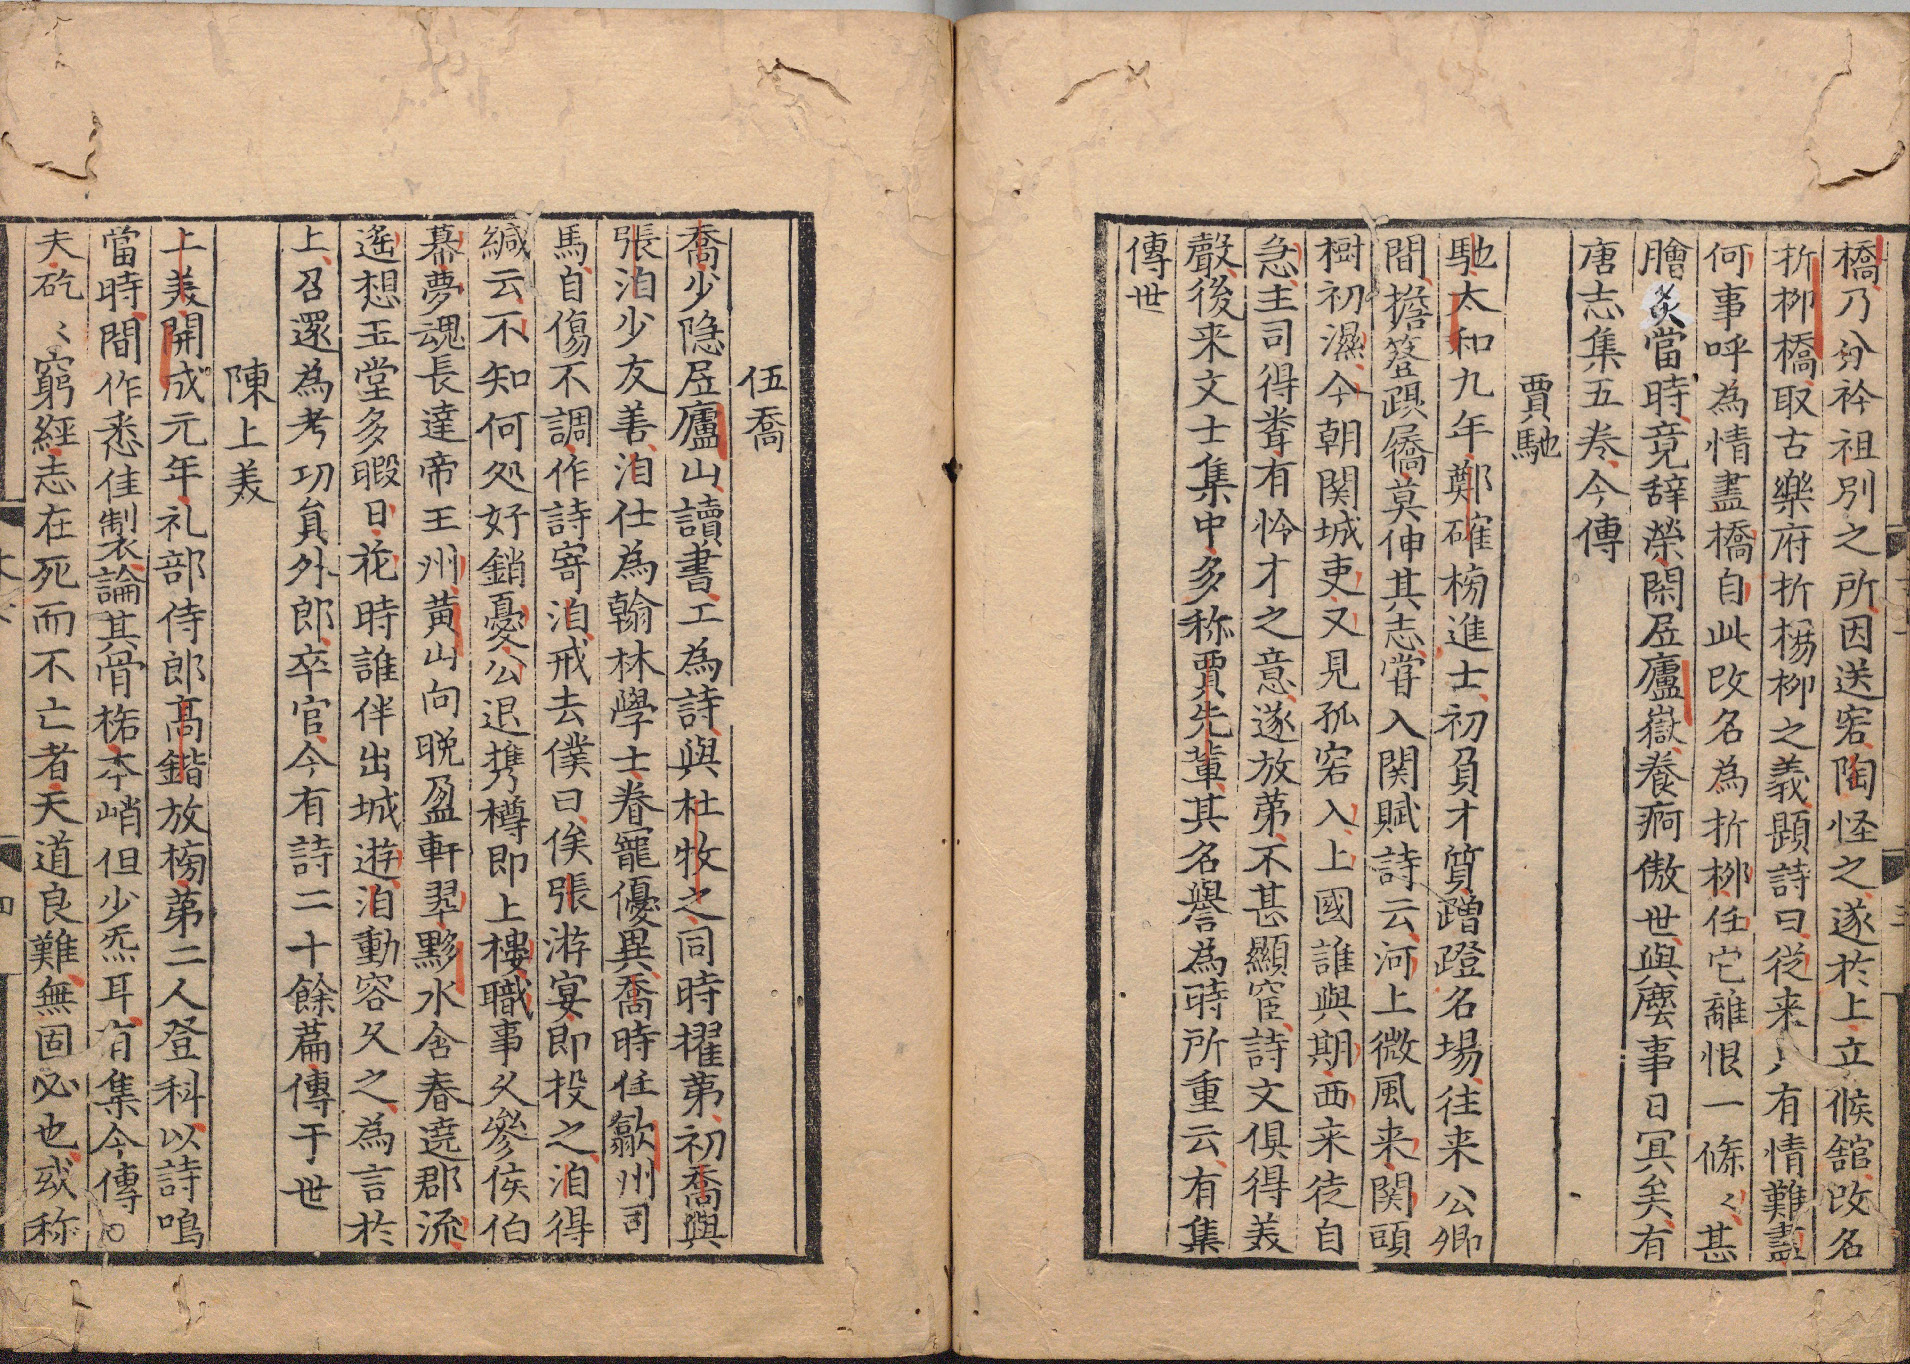 橋乃分衿祖別之所因送客陶怪之遂於上立候舘改名
折柳橋取古樂府折楊柳之義題詩曰從来只有情難盡
何事呼為情盡橋自此改名為折柳任它離恨一條〻甚
膾炙當時竟辞榮閑居廬嶽養痾傲世與塵事日冥矣有
唐志集五卷今傳
賈馳
馳太和九年鄭確榜進士初負才質蹭蹬名場往来公卿
間擔簦躡屩莫伸其志甞入関賦詩云河上微風来関頭
樹初濕今朝関城吏又見孤客入上國誰與期西来徒自
急主司得聳有怜才之意遂放苐不甚顯宦詩文俱得美
聲後来文士集中多称賈先輩其名譽為時所重云有集
傳世
伍喬
喬少隐居廬山讀書工為詩與杜牧之同時擢苐初喬與
張洎少友善洎仕為翰林學士眷寵優異喬時任歙州司
馬自傷不調作詩寄洎戒去僕曰俟張游宴即投之洎得
緘云不知何処好銷憂公退携樽即上樓職事久參侯伯
幕夢魂長達帝王州黄山向晚盈軒翠黟水含春遶郡流
遙想玉堂多暇日花時誰伴出城遊洎動容久之為言於
上召還為考功負外郎卒官今有詩二十餘篇傳于世
陳上美
上美開成元年礼部侍郎高鍇放榜苐二人登科以詩鳴
當時間作悉佳製論其骨栝夲峭但少炁耳有集今傳
夫矻〻窮經志在死而不亡者天道良難無固必也或称